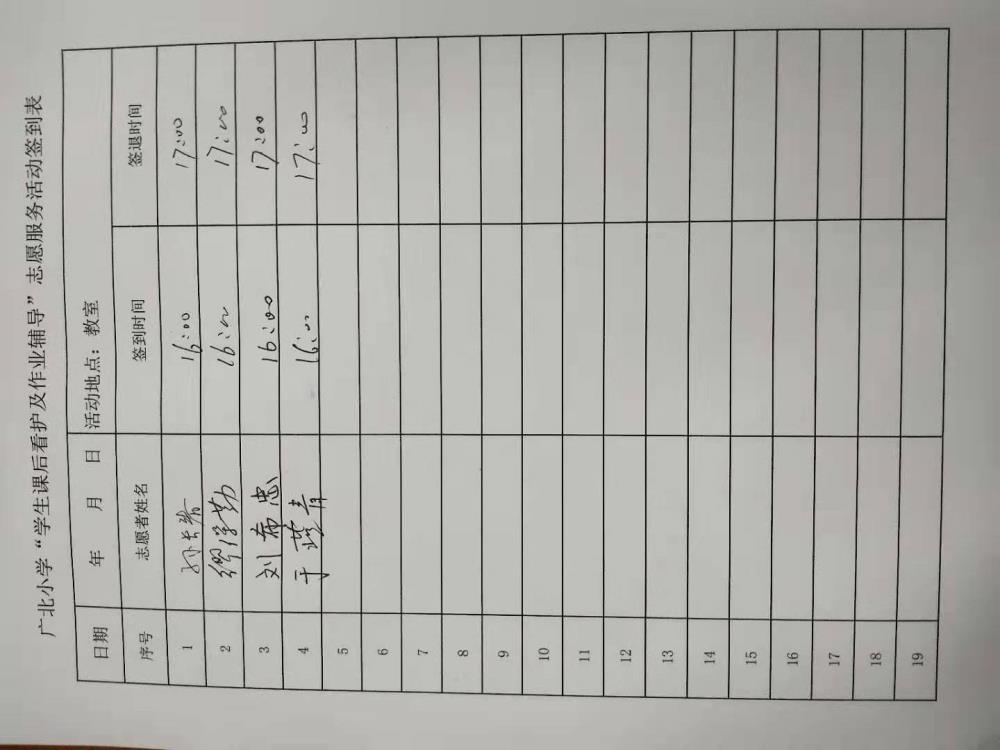 广北小学“学生课后看护及作业辅导”志愿服务活动签到表
日期 年 月 日 活动地点：教室
序号 志愿者姓名 签到时间 签退时间
1 16:00 17:00
2 16:00 17:00
3 刘希忠 16:00 17:00
4 16:00 17:00
5
6
7
8
9
10
11
12
13
14
15
16
17
18
19